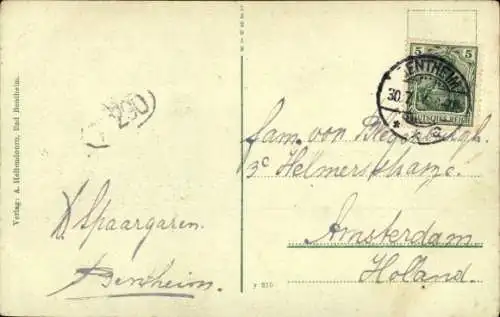 Verlag: A. Hellendoorn, Bad Bentheim.
290
Spaargaren.
Bentheim.
5 5
BENTHEIM
30.7
DEUTSCHES REICH
Fam. von
3e Helmersstraat
Amsterdam
Holland.